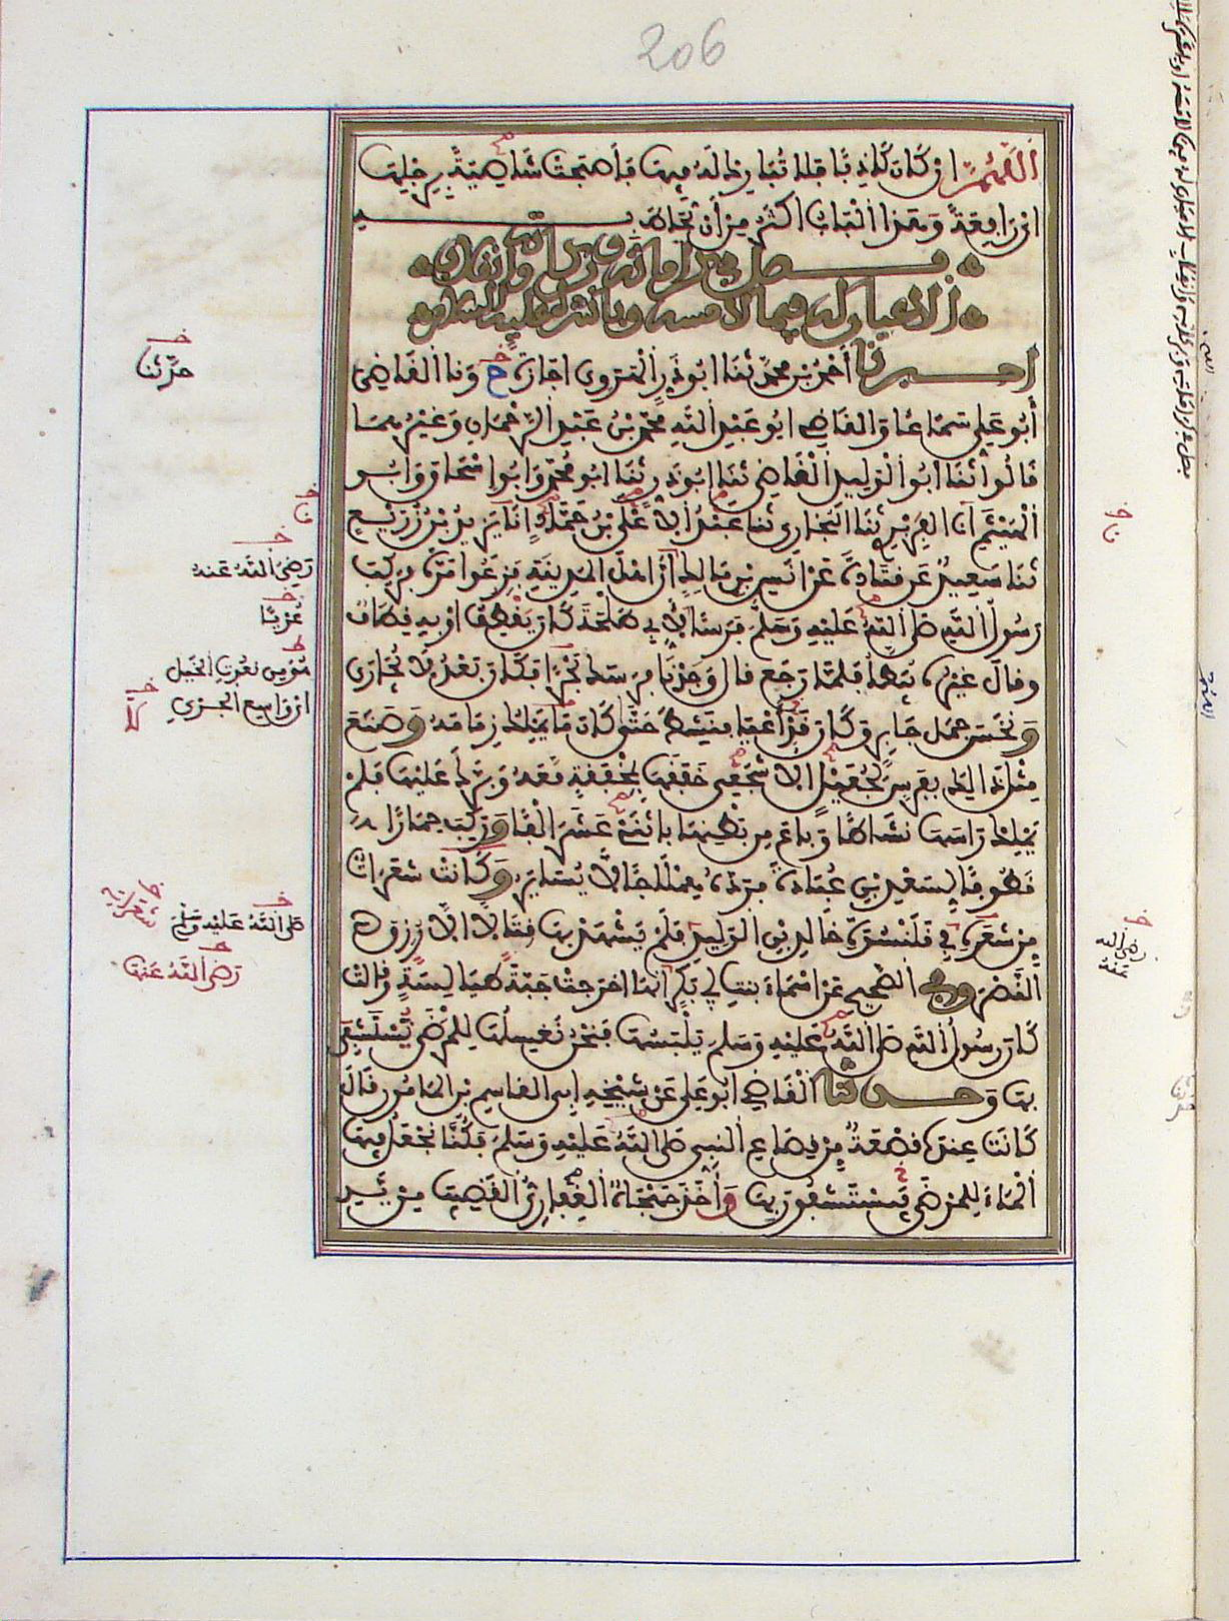 206
اللهم ان كان كاذبا فلا تبارك له فيها فأصبحت شاصية برجليها
اي رافعة وهذا الباب اكثر من أن يحاط به
فصل في كراماته وبركاته وانقلاب
الاعيان له فيما لمسه وباشره عليه السلام
اخبرنا أحمد بن محمد ثنا ابو ذر الهروي اجازة ح ونا القاضي
أبو علي سماعا والقاضي ابو عبد الله محمد بن عبد الرحمان وغيرهما
قالوا ثنا أبو الوليد القاضي ثنا ابو ذر ثنا ابو محمد وابو اسحاق وابو
الهيثم انا الفربري ثنا البخاري ثنا عبد الاعلى بن حماد انا يزيد بن زريع
ثنا سعيد عن قتادة عن انس بن مالك أن اهل المدينة فزعوا مرة فركب
رسول الله صلى الله عليه وسلم فرسا لأبي طلحة كان يقطف او به قطاف
وقال غيره يبطأ فلما رجع قال وجدنا فرسك بحرا فكان بعد لا يجارى
ونخس جمل جابر وكان قد أعيا فنشط حتى كان ما يملك زمامه وصنع
مثل ذالك بفرس لجعيل الاشجعي خفقها بمخفقة معه وبرك عليها فلم
يملك راسها نشاطا وباع من بطنها باثني عشر الفا وركب حمارا
قطوفا لسعد بن عبادة فرده هملاجا لا يساير وكانت شعرات
من شعره في قلنسوة خالد بن الوليد فلم يشهد بها قتالا الا رزق
النصر وفي الصحيح عن اسماء بنت ابي بكر انها اخرجت جبة طيالسة وقالت
كان رسول الله صلى الله عليه وسلم يلبسها فنحن نغسلها للمرضى يستشفى
بها وحدثنا القاضي ابو علي عن شيخه ابي القاسم بن المامون قال
كانت عندنا قصعة من قصاع النبي صلى الله عليه وسلم فكنا نجعل فيها
الماء للمرضى فيستشفون بها وأخذ جهجاه الغفاري القضيب من يد
حدثنا
رضي الله عنه
صلى الله عليه وسلم
رضي الله عنها